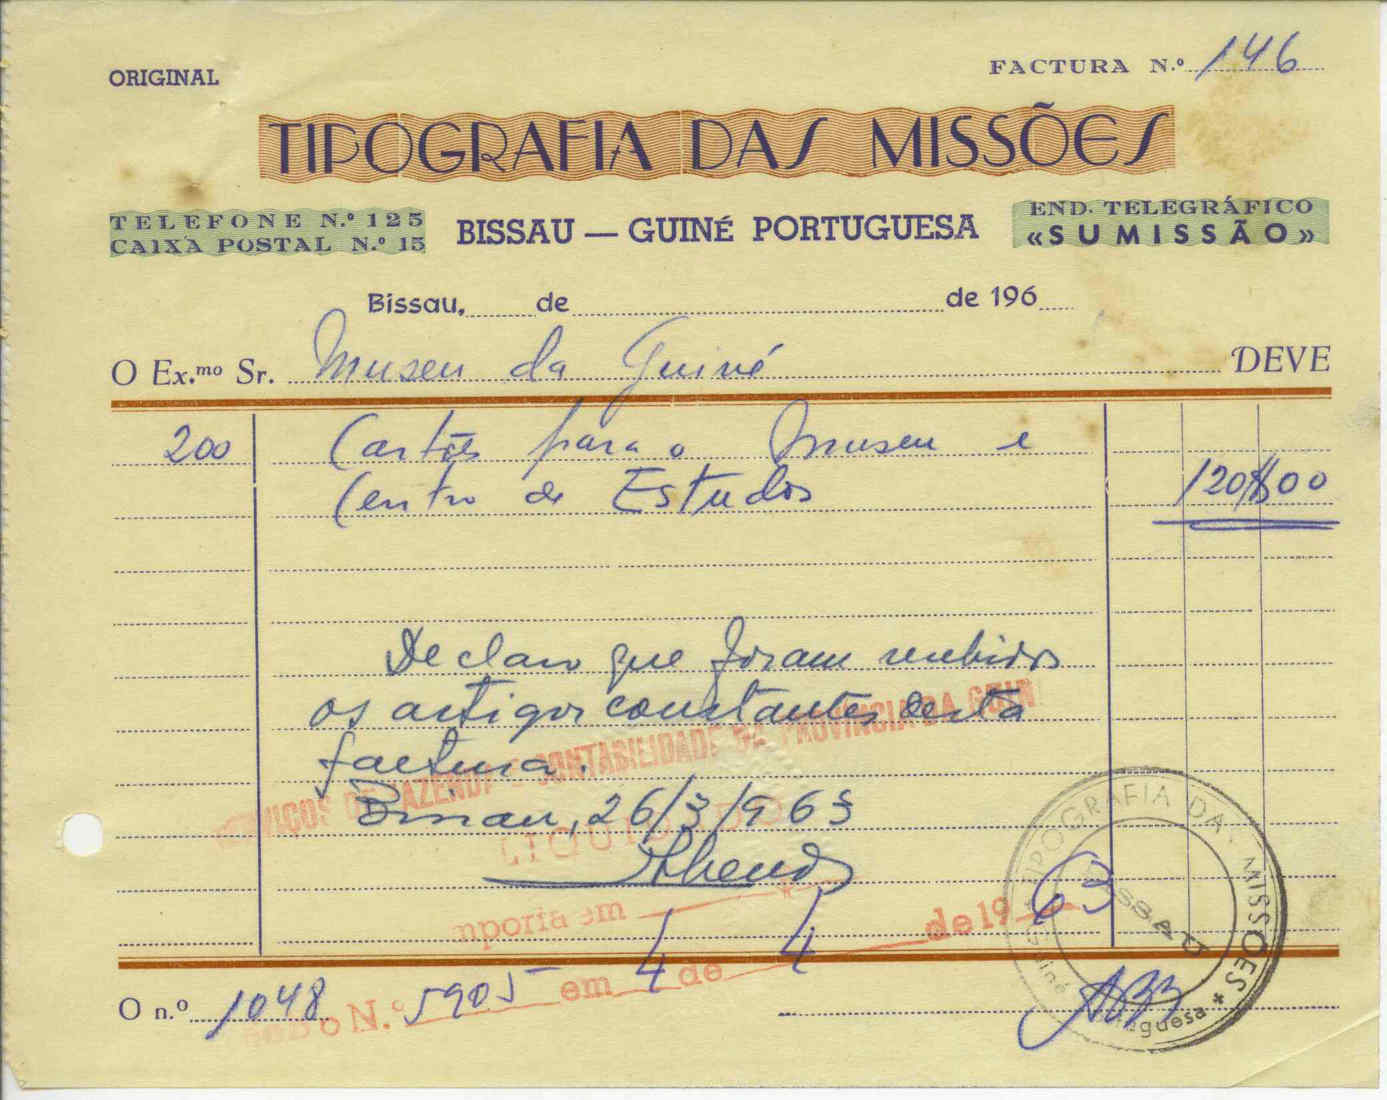 ORIGINAL
FACTURA N.º 146
TIPOGRAFIA DAS MISSÕES
TELEFONE N.º 125
CAIXA POSTAL N.º 15
BISSAU — GUINÉ PORTUGUESA
END. TELEGRÁFICO
«SUMISSÃO»
Bissau, de de 196
O Ex.mo Sr. Museu da Guiné DEVE
200 Cartões para o Museu e
Centro de Estudos 120$00
Declaro que foram recebidos
os artigos constantes desta
factura.
SERVIÇOS DE FAZENDA E CONTABILIDADE DA PROVINCIA DA GUIN
Bissau, 26/3/963
TIPOGRAFIA DAS MISSÕES
BISSAU
Guiné Portuguesa
mporta em
de 1963
O n.º 1048
N.º 5905 em 4 de 4